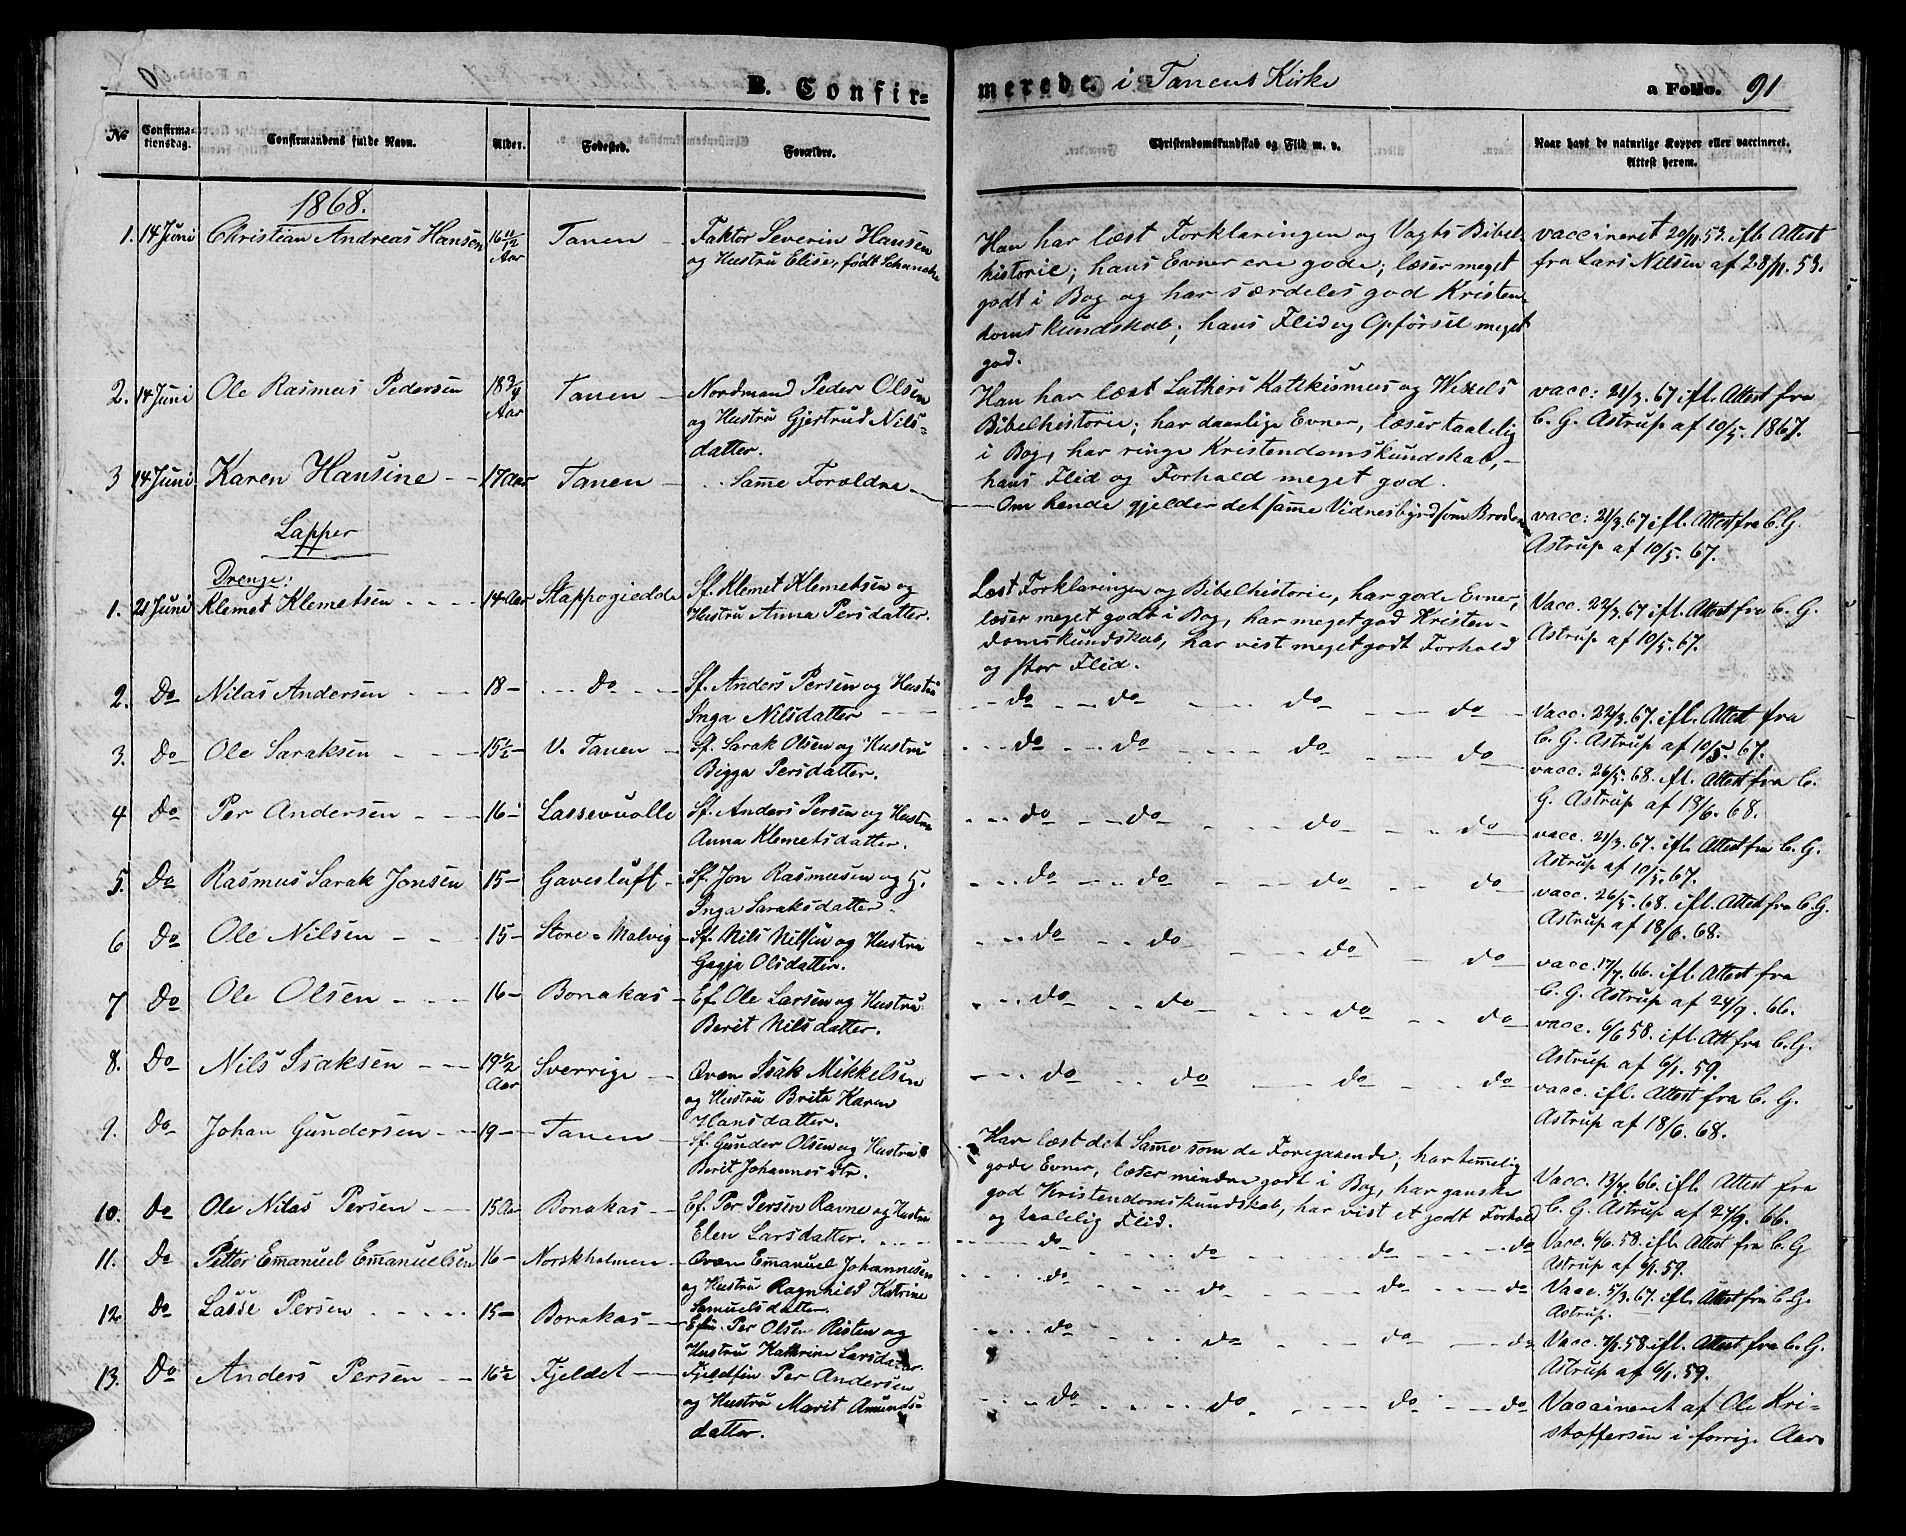 B. Confir=
merede. i Tanens Kirke
a Folio. 91
No
Confirma-
tionsdag.
Confirmandens fulde Navn.
Alder.
Fødested.
Forældre.
Christendomskundskab og Flid m. v.
Naar havt de naturlige Kopper eller vaccineret.
Attest herom.
1868.
1. 14 Juni Christian Andreas Hansen 16 11/12 Aar Tanen - Faktor Severin Hansen
og Hustru Elise, født Schancke
Han har læst Forklaringen og Vogts Bibel-
historie; hans Evner ere gode; læser meget
godt i Bog og har særdeles god Kristen-
domskundskab; hans Flid og Opførsel meget
god.
vaccineret 20/11 53. ifl. Attest
fra Lars Nilsen af 28/11. 53.
2. 14 Juni Ole Rasmus Pedersen 18 3/4 Aar Tanen - Nordmand Peder Olsen
og Hustru Gjertrud Nils=
datter.
Han har læst Luthers Katekismus og Wexels
Bibelhistorie; har daarlige Evner, læser taalelig
i Bog, har ringe Kristendomskundskab,
hans Flid og Forhold meget god.
vacc: 21/3. 67 ifl. Attest fra
C. G. Astrup af 10/5. 1867.
3 14 Juni Karen Hansine - - 17 Aar Tanen - Same Forældre
Om hende gjelder det same Vidnesbyrd som Broderen
vacc: 21/3. 67 ifl. Attest fra C. G.
Astrup af 10/5. 67.
Lapper
Drenge:
1. 21 Juni Klemet Klemetsen - - - - 14 Aar Stappogiedde Sf. Klemet Klemetsen og
Hustru Anna Persdatter.
Læst Forklaringen og Bibelhistorie, har gode Evner,
læser meget godt i Bog, har meget god Kristen-
domskundskab, har vist meget godt Forhold
og stor Flid.
Vacc. 22/3. 67 ifl. Attest fra C. G.
Astrup af 10/5. 67.
2. Do Nilas Andersen - - - 18 - - - Do - - Sf. Anders Persen og Hustru
Inga Nilsdatter
do do do do
Vacc. 22/3. 67. ifl. Attest fra
C. G. Astrup af 10/5. 67.
3. Do Ole Saraksen - - 15 1/2 - V. Tanen - Sf. Sarak Olsen og Hustru
Bigga Persdatter.
do do do do
vacc. 26/5. 68. ifl. Attest fra C.
G. Astrup af 18/6. 68.
4 Do Per Andersen - - 16 - Lassevuolle Sf. Anders Persen og Hustru
Anna Klemetsdatter.
do do do do
vacc. 21/3. 67. ifl. Attest fra C. G.
Astrup af 10/5. 67.
5. Do Rasmus Sarak Jonsen 15 - Gavesluft - Sf. Jon Rasmusen og H.
Inga Saraksdatter.
do do do do
vacc. 26/5. 68. ifl. Attest fra C. G.
Astrup af 18/6. 68.
6 Do Ole Nilsen - - 15 - Store=Malvig - Sf. Nils Nilsen og Hustru
Gagja Olsdatter.
do do do do
vacc. 17/7. 66. ifl. Attest fra
C. G. Astrup af 24/9. 66.
7 Do Ole Olsen - - - 16 - Bonakas - Ef. Ole Larsen og Hustru
Berit Nilsdatter.
do do do do
vacc. 6/6 58. ifl. Att fra C. G.
Astrup af 6/1. 59.
8. Do Nils Isaksen - - - 19 1/2 Aar Sverrige - Qvæn Isak Mikkelsen
og Hustru Brita Karen
Hansdatter.
do do do do
vacc. ifl. Attest fra C. G.
Astrup af 18/6. 68.
9. Do Johan Gundersen - - 19 - Tanen - Sf. Gunder Olsen og Hustru
Berit Johannesdtr.
Har læst det Same som de Foregaaende, har temelig
gode Evner, læser mindre godt i Bog, har ganske
god Kristendomskundskab, har vist et godt Forhold
og taalelig Flid.
Vacc. 13/7. 66. ifl. Attest fra
C. G. Astrup af 24/9. 66.
10. Do Ole Nilas Persen - - - 15 Aar Bonakas - Ef. Per Persen Ravna og Hustru
Elen Larsdatter.
do do do do
Vacc. 6/6. 58. ifl. Attest fra C. G
Astrup af 6/1. 59.
11. Do Petter Emanuel Emanuelsen 16 - Norskholmen - Qvæn Emanuel Johannesen
og Hustru Ragnhild Katrine
Samuelsdatter.
do do do do
Vacc. 5/3. 67. ifl. Attest fra C. G.
Astrup.
12. Do Lasse Persen - - - - 15 - Bonakas - Efin. Per Olsen Risten og
Hustru Kathrine Larsdatter.
do do do do
Vacc. 7/6. 58. ifl. Attest fra C. G.
Astrup af 6/1. 59.
13. Do Anders Persen - - 16 1/2 Fjeldet - Fjeldfin Per Andersen
og Hustru Marit Amunds=
datter.
do do do do
Vaccineret af Ole Kri-
stoffersen i forrige Aar.